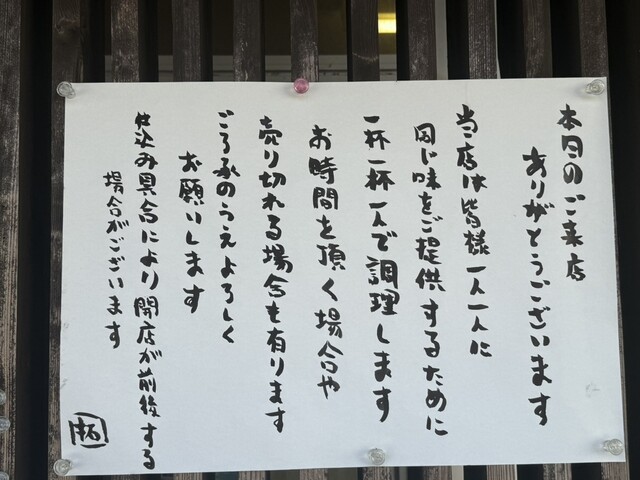 本日のご来店
ありがとうございます
当店は皆様一人一人に
同じ味をご提供するために
一杯一杯一人で調理します
お時間を頂く場合や
売り切れる場合も有ります
ごろ承のうえよろしく
お願いします
仕込み具合により開店が前後する
場合がございます